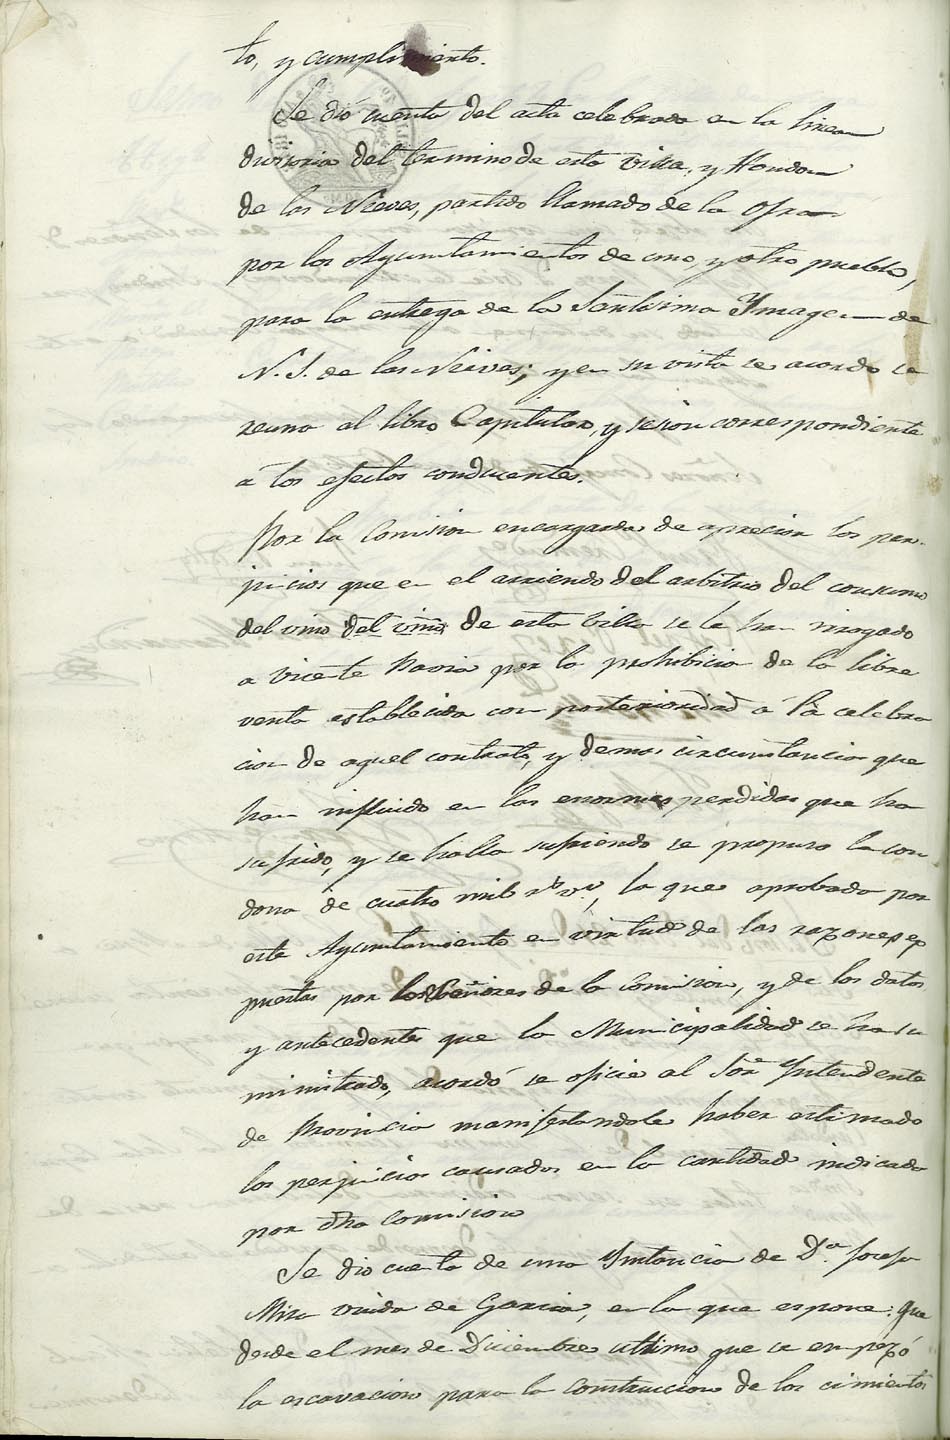 to, y cumplimiento.
Se dió cuenta del acta celebrada en la linea
divisoria del termino de esta Villa, y Hondon
de las Nieves, partido llamado de la Ofra
por los Ayuntamientos de uno, y otro pueblo,
para la entrega de la Santisima Ymagen de
N. S. de las Nieves; y en su vista se acordo se
reuna al libro Capitular, y sesion correspondiente
a los efectos conducentes.
Por la Comision encargada de apreciar los per-
juicios que en el arriendo del arbitrio del consumo
del vino del vino de esta Villa se le han irrogado
a Vicente por la prohibicion de la libre
venta establecida con posterioridad á la celebra
cion de aquel contrato, y demas circunstancias que
han influido en las enormes perdidas que ha
sufrido, y se halla sufriendo se propuso la con
dona de cuatro mil rs. vn., la que aprobada por
este Ayuntamiento en virtud de las razones es
puestas por los Señores de la comision, y de los datos
y antecedentes que la Municipalidad se ha su
ministrado, acordó se oficie al Sor. Yntendente
de Provincia manifestandole haber estimado
los perjuicios causados en la cantidad indicada
por dha comision
Se dio cuenta de una Ynstancia de Da. Josefa
Mira viuda de Garcia, en la que espone: Que
desde el mes de Diciembre ultimo que se empezó
la escavacion para la construccion de los cimientos